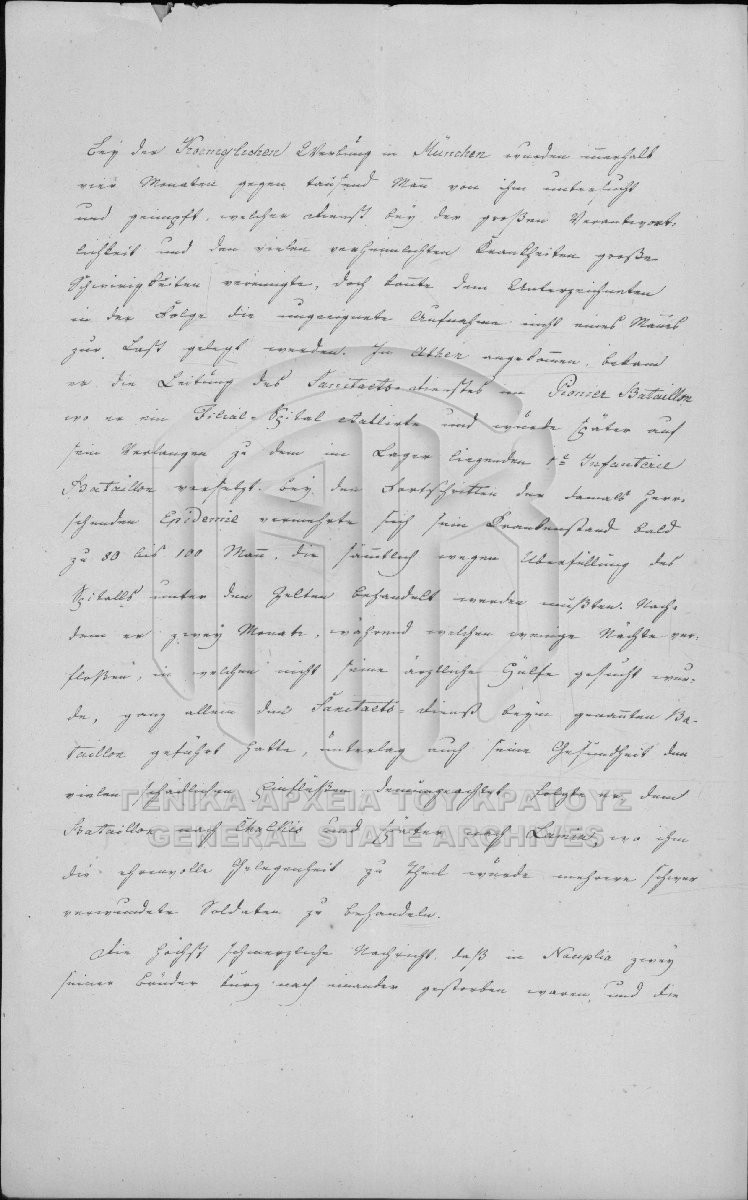 Bey der Koeniglichen Werbung in München wurden innerhalb
vier Monaten gegen tausend Mañ von ihm untersucht
und geimpft, welcher Dienst bey der großen Verantwort-
lichkeit und den vielen verheimlichten Krankheiten große
Schwierigkeiten vereinigte, doch konnte dem Unterzeichneten
in der Folge die ungeeignete Aufnahme nicht eines Mañes
zur Last gelegt werden. In Athen angekommen, bekam
er die Leitung des Sanitaets-Dienstes im Pionier Bataillon
wo er ein Filial-Spital etablirte und wurde später auf
sein Verlangen zu dem im Lager liegenden 1n Infanterie
Bataillon versetzt. Bey den Fortschritten der damals herr-
schenden Epidemie vermehrte sich sein Krankenstand bald
zu 80 bis 100 Mañ, die sämtlich wegen Überfüllung des
Spitalls unter den Zelten behandelt werden mußten. Nach-
dem er zwey Monate, während welchen wenige Nächte ver-
floßen, in welchen nicht seine ärztliche Hülfe gesucht wur-
de, ganz allein den Sanitaets-Dienst beym genañten Ba-
taillon geführt hatte, unterlag auch seine Gesundheit den
vielen schädlichen Einflüßen, demungeachtet folgte er dem
Bataillon nach Chalkis und später nach Lamia, wo ihm
die ehrenvolle Gelegenheit zu Theil wurde mehrere schwer
verwundete Soldaten zu behandeln.
Die höchst schmerzliche Nachricht, daß in Nauplia zwey
seiner Brüder kurz nach einander gestorben waren, und die
ΓΕΝΙΚΑ ΑΡΧΕΙΑ ΤΟΥ ΚΡΑΤΟΥΣ
GENERAL STATE ARCHIVES